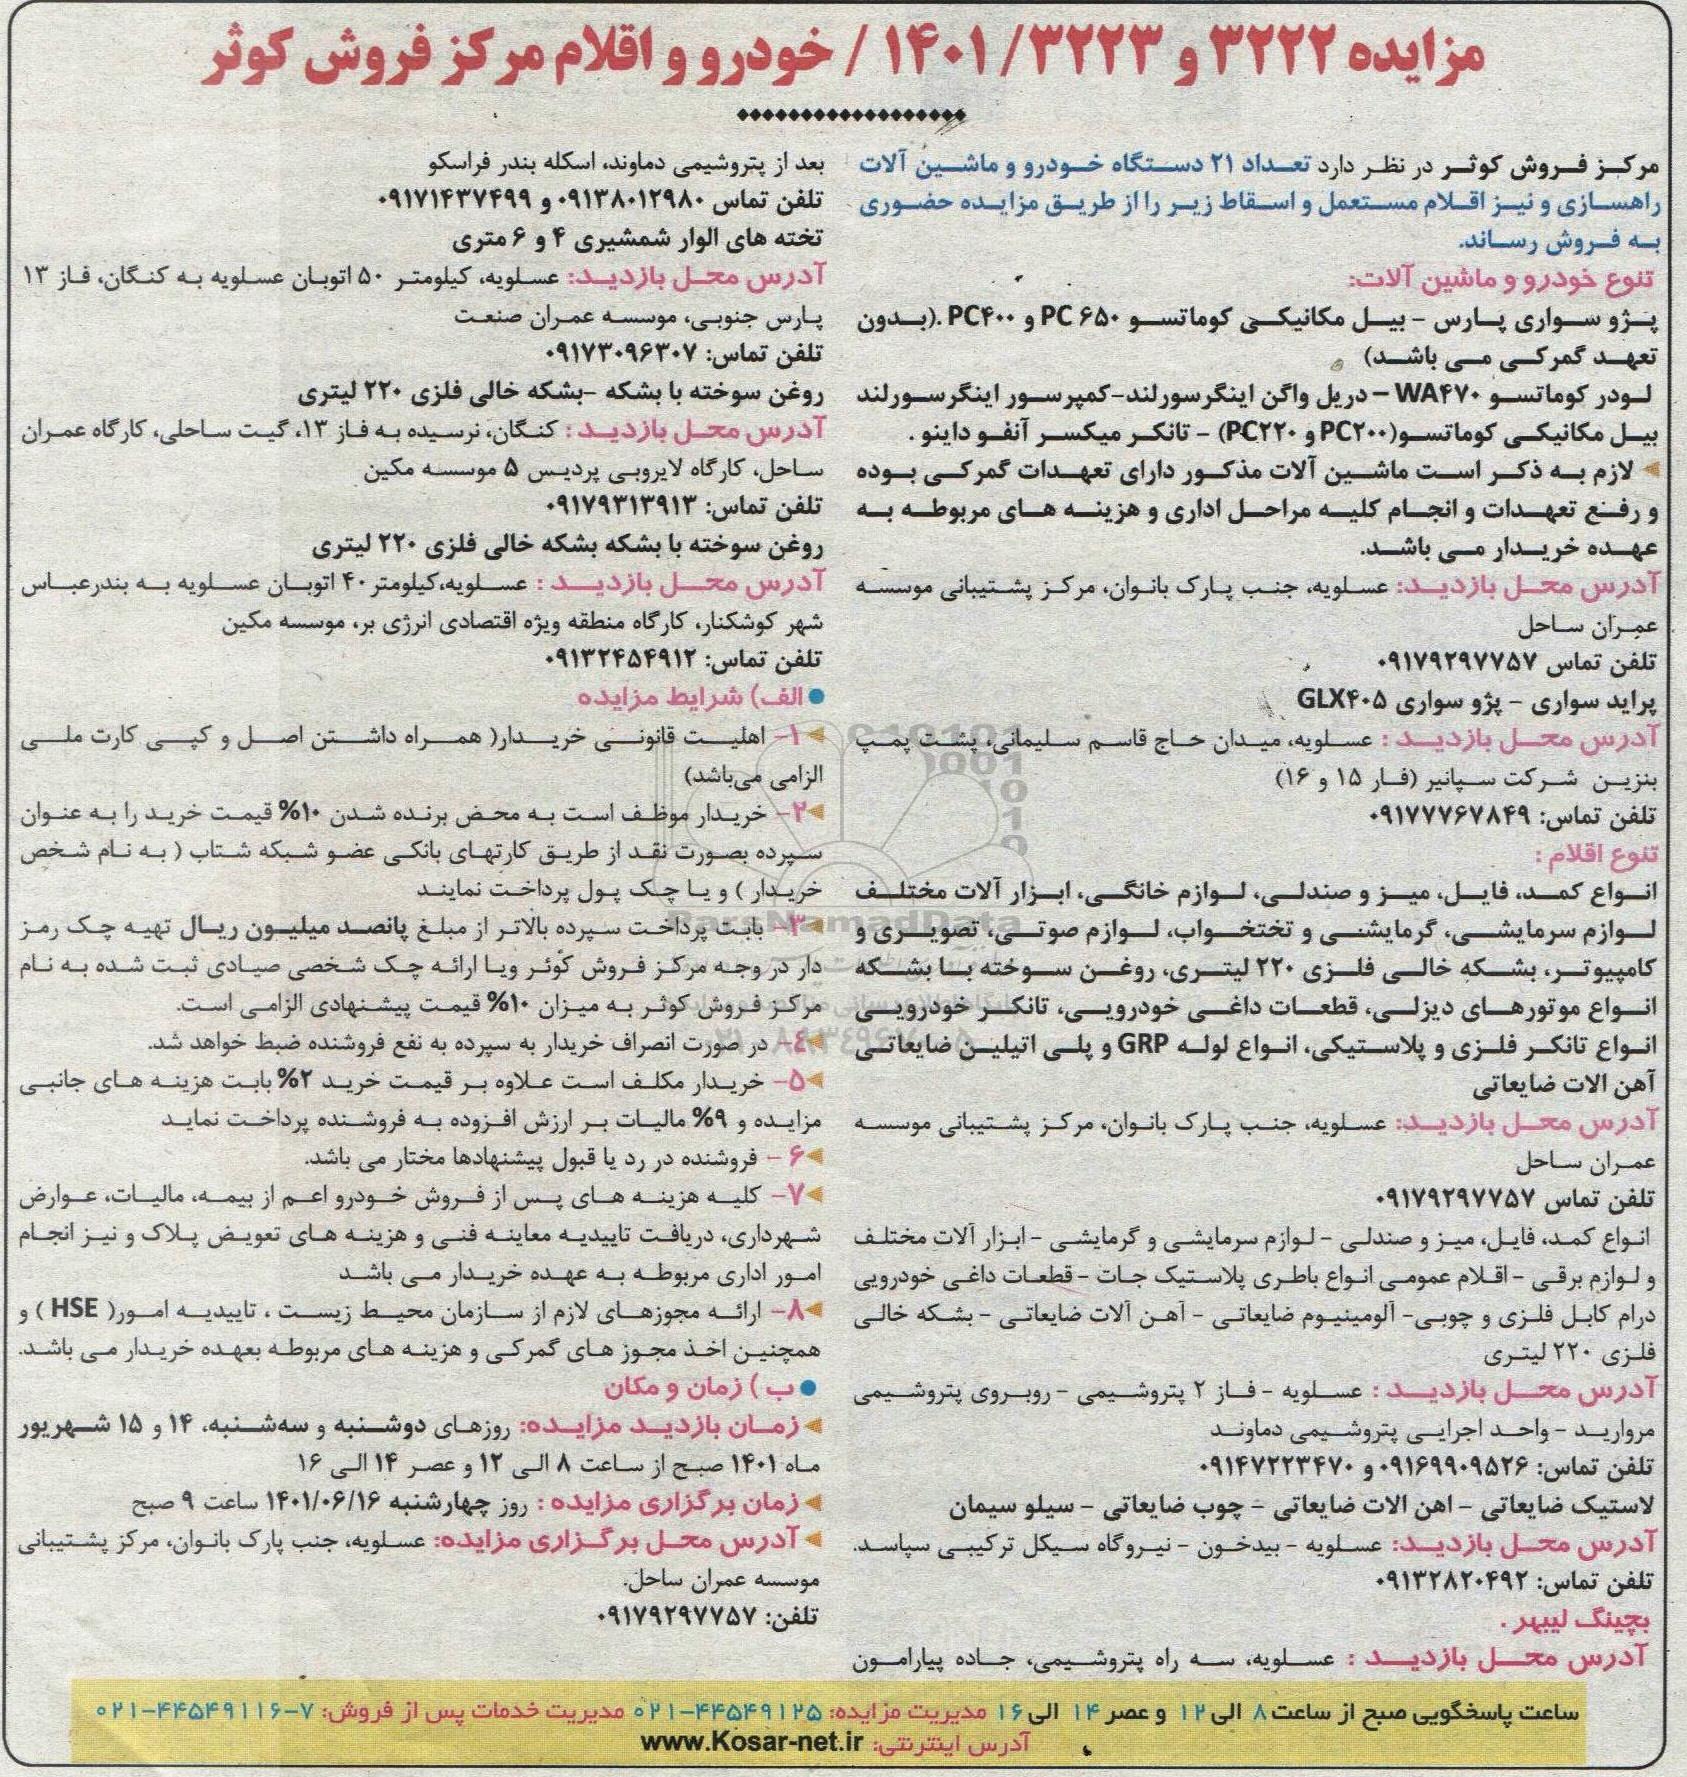 مزایده ۳۲۲۲ و ۱۴۰۱/۳۲۲۳ / خودرو و اقلام مرکز فروش کوثر
مرکز فروش کوثر در نظر دارد تعداد ۲۱ دستگاه خودرو و ماشین آلات
راهسازی و نیز اقلام مستعمل و اسقاط زیر را از طریق مزایده حضوری
به فروش رساند.
تنوع خودرو و ماشین آلات:
پژو سواری پارس – بیل مکانیکی کوماتسو PC ۶۵۰ و PC۴۰۰ .(بدون
تعهد گمرکی می باشد)
لودر کوماتسو WA۴۷۰ – دریل واگن اینگرسورلند-کمپرسور اینگرسورلند
بیل مکانیکی کوماتسو(PC۲۰۰ و PC۲۲۰) – تانکر میکسر آنفو داینو .
لازم به ذکر است ماشین آلات مذکور دارای تعهدات گمرکی بوده
و رفع تعهدات و انجام کلیه مراحل اداری و هزینه های مربوطه به
عهده خریدار می باشد.
آدرس محل بازدید: عسلویه، جنب پارک بانوان، مرکز پشتیبانی موسسه
عمران ساحل
تلفن تماس ۰۹۱۷۹۲۹۷۷۵۷
پراید سواری – پژو سواری GLX۴۰۵
آدرس محل بازدید : عسلویه، میدان حاج قاسم سلیمانی، پشت پمپ
بنزین شرکت سپانیر (فار ۱۵ و ۱۶)
تلفن تماس: ۰۹۱۷۷۷۶۷۸۴۹
تنوع اقلام :
انواع کمد، فایل، میز و صندلی، لوازم خانگی، ابزار آلات مختلف
لوازم سرمایشی، گرمایشی و تختخواب، لوازم صوتی، تصویری و
کامپیوتر، بشکه خالی فلزی ۲۲۰ لیتری، روغن سوخته با بشکه
انواع موتورهای دیزلی، قطعات داغی خودرویی، تانکر خودرویی
انواع تانکر فلزی و پلاستیکی، انواع لوله GRP و پلی اتیلین ضایعاتی
آهن الات ضایعاتی
آدرس محل بازدید: عسلویه، جنب پارک بانوان، مرکز پشتیبانی موسسه
عمران ساحل
تلفن تماس ۰۹۱۷۹۲۹۷۷۵۷
انواع کمد، فایل، میز و صندلی – لوازم سرمایشی و گرمایشی – ابزار آلات مختلف
و لوازم برقی – اقلام عمومی انواع باطری پلاستیک جات – قطعات داغی خودرویی
درام کابل فلزی و چوبی– آلومینیوم ضایعاتی – آهن آلات ضایعاتی – بشکه خالی
فلزی ۲۲۰ لیتری
آدرس محل بازدید : عسلویه – فاز ۲ پتروشیمی – روبروی پتروشیمی
مروارید – واحد اجرایی پتروشیمی دماوند
تلفن تماس: ۰۹۱۶۹۹۰۹۵۲۶ و ۰۹۱۴۷۲۲۳۴۷۰
لاستیک ضایعاتی – اهن الات ضایعاتی – چوب ضایعاتی – سیلو سیمان
آدرس محل بازدید: عسلویه – بیدخون – نیروگاه سیکل ترکیبی سپاسد.
تلفن تماس: ۰۹۱۳۲۸۲۰۴۹۲
بچینگ لیبهر .
آدرس محل بازدید : عسلویه، سه راه پتروشیمی، جاده پیارامون
بعد از پتروشیمی دماوند، اسکله بندر فراسکو
تلفن تماس ۰۹۱۳۸۰۱۲۹۸۰ و ۰۹۱۷۱۴۳۷۴۹۹
تخته های الوار شمشیری ۴ و ۶ متری
آدرس محل بازدید: عسلویه، کیلومتر ۵۰ اتوبان عسلویه به کنگان، فاز ۱۳
پارس جنوبی، موسسه عمران صنعت
تلفن تماس: ۰۹۱۷۳۰۹۶۳۰۷
روغن سوخته با بشکه –بشکه خالی فلزی ۲۲۰ لیتری
آدرس محل بازدید : کنگان، نرسیده به فاز ۱۳، گیت ساحلی، کارگاه عمران
ساحل، کارگاه لایروبی پردیس ۵ موسسه مکین
تلفن تماس: ۰۹۱۷۹۳۱۳۹۱۳
روغن سوخته با بشکه بشکه خالی فلزی ۲۲۰ لیتری
آدرس محل بازدید : عسلویه،کیلومتر ۴۰ اتوبان عسلویه به بندرعباس
شهر کوشکنار، کارگاه منطقه ویژه اقتصادی انرژی بر، موسسه مکین
تلفن تماس: ۰۹۱۳۲۴۵۴۹۱۲
الف) شرایط مزایده
۱– اهلیت قانونی خریدار( همراه داشتن اصل و کپی کارت ملی
الزامی می‌باشد)
۲– خریدار موظف است به محض برنده شدن ۱۰% قیمت خرید را به عنوان
سپرده بصورت نقد از طریق کارتهای بانکی عضو شبکه شتاب ( به نام شخص
خریدار ) و یا چک پول پرداخت نمایند
۳– بابت پرداخت سپرده بالاتر از مبلغ پانصد میلیون ریال تهیه چک رمز
دار در وجه مرکز فروش کوثر ویا ارائه چک شخصی صیادی ثبت شده به نام
مرکز فروش کوثر به میزان ۱۰% قیمت پیشنهادی الزامی است.
۴– در صورت انصراف خریدار به سپرده به نفع فروشنده ضبط خواهد شد.
۵– خریدار مکلف است علاوه بر قیمت خرید ۲% بابت هزینه های جانبی
مزایده و ۹% مالیات بر ارزش افزوده به فروشنده پرداخت نماید
۶ – فروشنده در رد یا قبول پیشنهادها مختار می باشد.
۷– کلیه هزینه های پس از فروش خودرو اعم از بیمه، مالیات، عوارض
شهرداری، دریافت تاییدیه معاینه فنی و هزینه های تعویض پلاک و نیز انجام
امور اداری مربوطه به عهده خریدار می باشد
۸– ارائه مجوزهای لازم از سازمان محیط زیست ، تاییدیه امور( HSE ) و
همچنین اخذ مجوز های گمرکی و هزینه های مربوطه بعهده خریدار می باشد.
ب ) زمان و مکان
زمان بازدید مزایده: روزهای دوشنبه و سه‌شنبه، ۱۴ و ۱۵ شهریور
ماه ۱۴۰۱ صبح از ساعت ۸ الی ۱۲ و عصر ۱۴ الی ۱۶
زمان برگزاری مزایده : روز چهارشنبه ۱۴۰۱/۰۶/۱۶ ساعت ۹ صبح
آدرس محل برگزاری مزایده: عسلویه، جنب پارک بانوان، مرکز پشتیبانی
موسسه عمران ساحل.
تلفن: ۰۹۱۷۹۲۹۷۷۵۷
ساعت پاسخگویی صبح از ساعت ۸ الی ۱۲ و عصر ۱۴ الی ۱۶ مدیریت مزایده: ۰۲۱-۴۴۵۴۹۱۲۵ مدیریت خدمات پس از فروش: ۷-۰۲۱-۴۴۵۴۹۱۱۶
آدرس اینترنتی: www.Kosar-net.ir
ParsNamadData